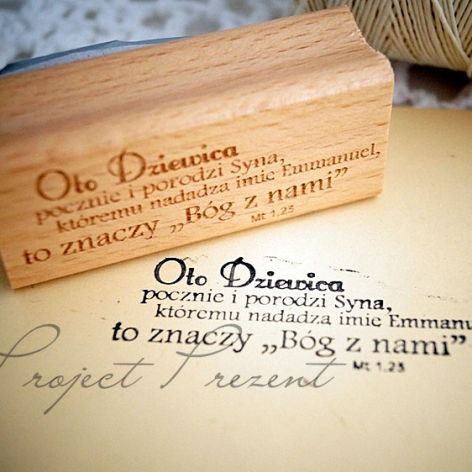 Oto Dziewica
pocznie i porodzi Syna,
któremu nadadza imie Emmanuel,
to znaczy „Bóg z nami”
Mt 1,23
Oto Dziewica
pocznie i porodzi Syna,
któremu nadadza imie Emmanu
to znaczy „Bóg z nami”
Mt 1,23
Project Prezent